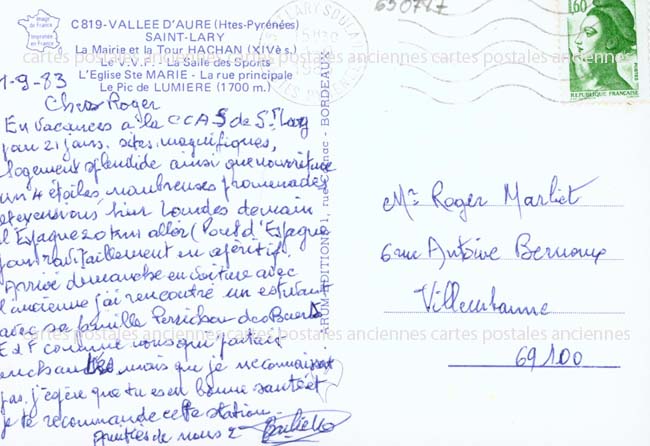 Image
de France
Imprimée
en France
C819-VALLEE D'AURE (Htes-Pyrénées)
SAINT-LARY
La Mairie et la Tour HACHAN (XIVè s.)
Le V.V.F. - La Salle des Sports
L'Eglise Ste MARIE - La rue principale
Le Pic de LUMIERE (1700 m.)
1-9-83
Cher Roger
En vacances à la CCAS de St Lary
pour 21 jours. sites magnifiques,
logement splendide ainsi que nourriture
un 4 étoiles, nombreuses promenades
hier Lourdes demain
l'Espagne 20 kms aller (Pont d'Espagne
pour ravitaillement en apéritif.
Arrivé dimanche en voiture avec
l'ancienne j'ai rencontré un
avec sa famille
EdF comme nous qui partait
mais que je ne connaissais
pas. j'espère que tu es en bonne santé et
je te recommande cette station
Amitiés de nous 2
BORDEAUX
650717
1,60
POSTES
REPUBLIQUE FRANCAISE
Mr Roger Marliet
6 rue Antoine Bernoux
Villeurbanne
69100
cartes postales anciennes cartes postales anciennes
cartes postales anciennes cartes postales anciennes